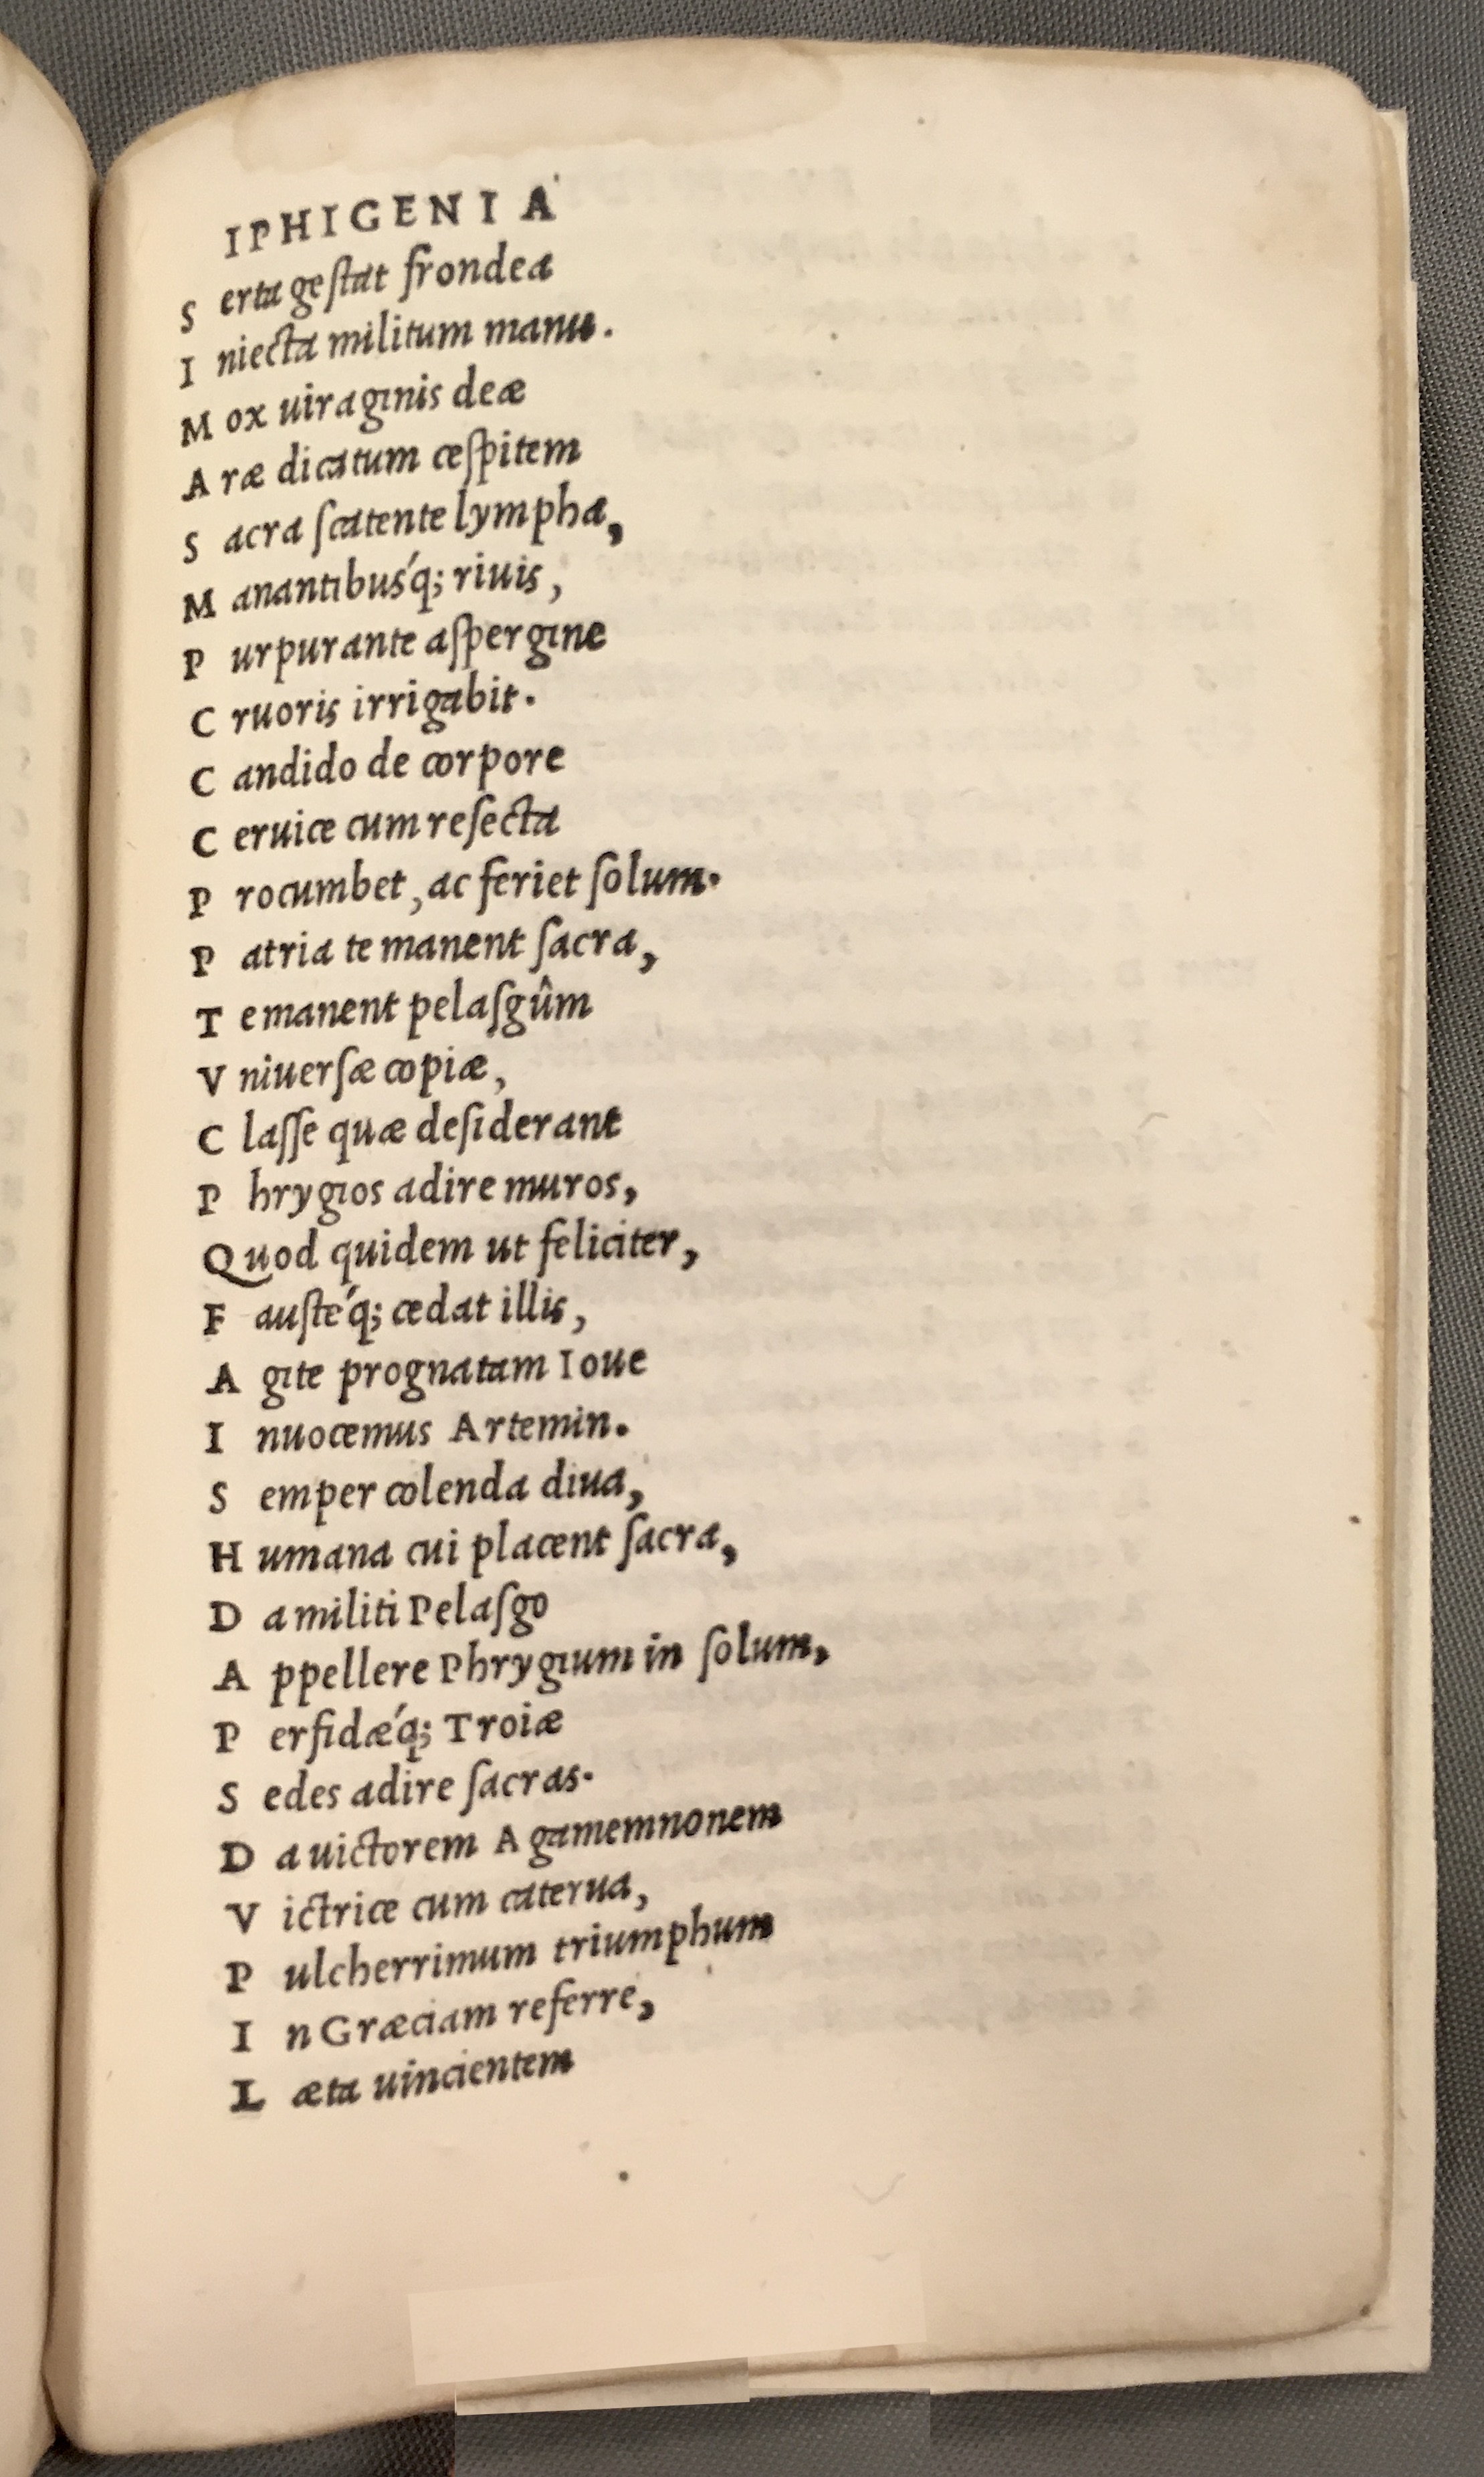 IPHIGENIA
Serta geſtat frondea
Iniecta militum manu.
Mox uiraginis deæ
Aræ dicatum ceſpitem
Sacra ſcatente lympha,
Manantibuśq; riuis,
Purpurante aſpergine
Cruoris irrigabit.
Candido de corpore
Ceruice cum reſecta
Procumbet, ac feriet ſolum.
Patria te manent ſacra,
Te manent pelaſgûm
Vniuerſæ copiæ,
Claſſe quæ deſiderant
Phrygios adire muros,
Quod quidem ut feliciter,
Fauſte´q; cedat illis,
Agite prognatam Ioue
Inuocemus Artemin.
Semper colenda diua,
Humana cui placent ſacra,
Da militi Pelaſgo
Appellere Phrygium in ſolum,
Perfidæ´q; Troiæ
Sedes adire ſacras.
Da uictorem Agamemnonem
Victrice cum caterua,
Pulcherrimum triumphum
In Græciam referre,
Læta uincientem